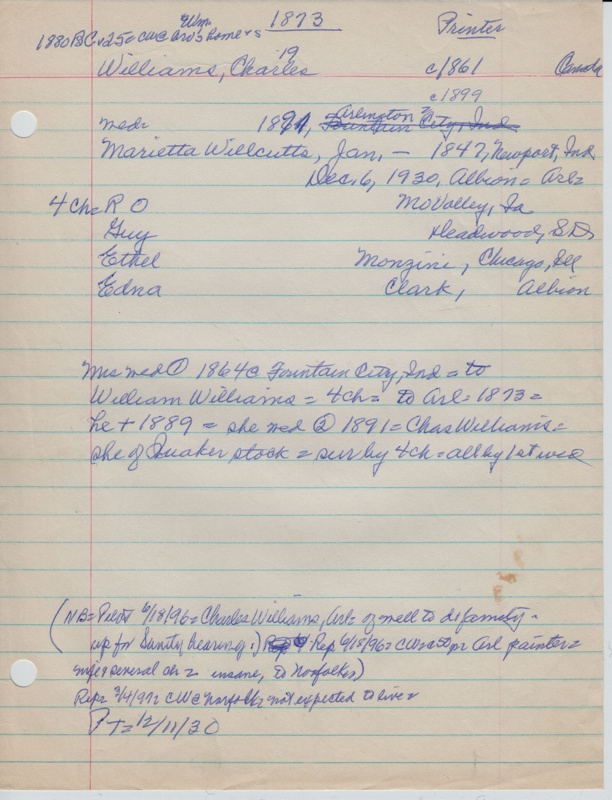 1873 Printer
Wm
1880 BC
19
Williams, Charles c1861 Canada
c1899
Arlington?
med= 1891, Fountain City, Ind
Marietta Willcutts, Jan, — 1847, Newport, Ind
Dec. 6, 1930, Albion = Arl=
4 ch= R O Mo Valley, Ia
Guy Deadwood, S.D.
Ethel Monzini, Chicago, Ill
Edna Clark, Albion
Mrs med ① 1864c Fountain City, Ind = to
William Williams = 4 ch = to Arl= 1873 =
he + 1889 = she med ② 1891 = Chas Williams =
she of Quaker stock = sur by 4 ch = all by 1st med
(NB= Pilot 6/18/96 = Charles Williams, Arl= of well to do family -
up for Sanity hearing.) Rep 6/18/96 = CW Arl painter=
wife & several ch = insane, to Norfolk=)
Rep= 3/4/97= CW @ Norfolk= not expected to live=
PT= 12/11/30